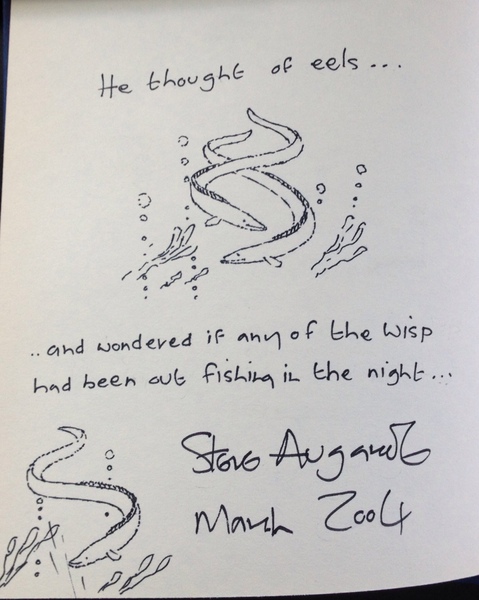 He thought of eels...
..and wondered if any of the Wisp
had been out fishing in the night...
Steve Augarde
March 2004